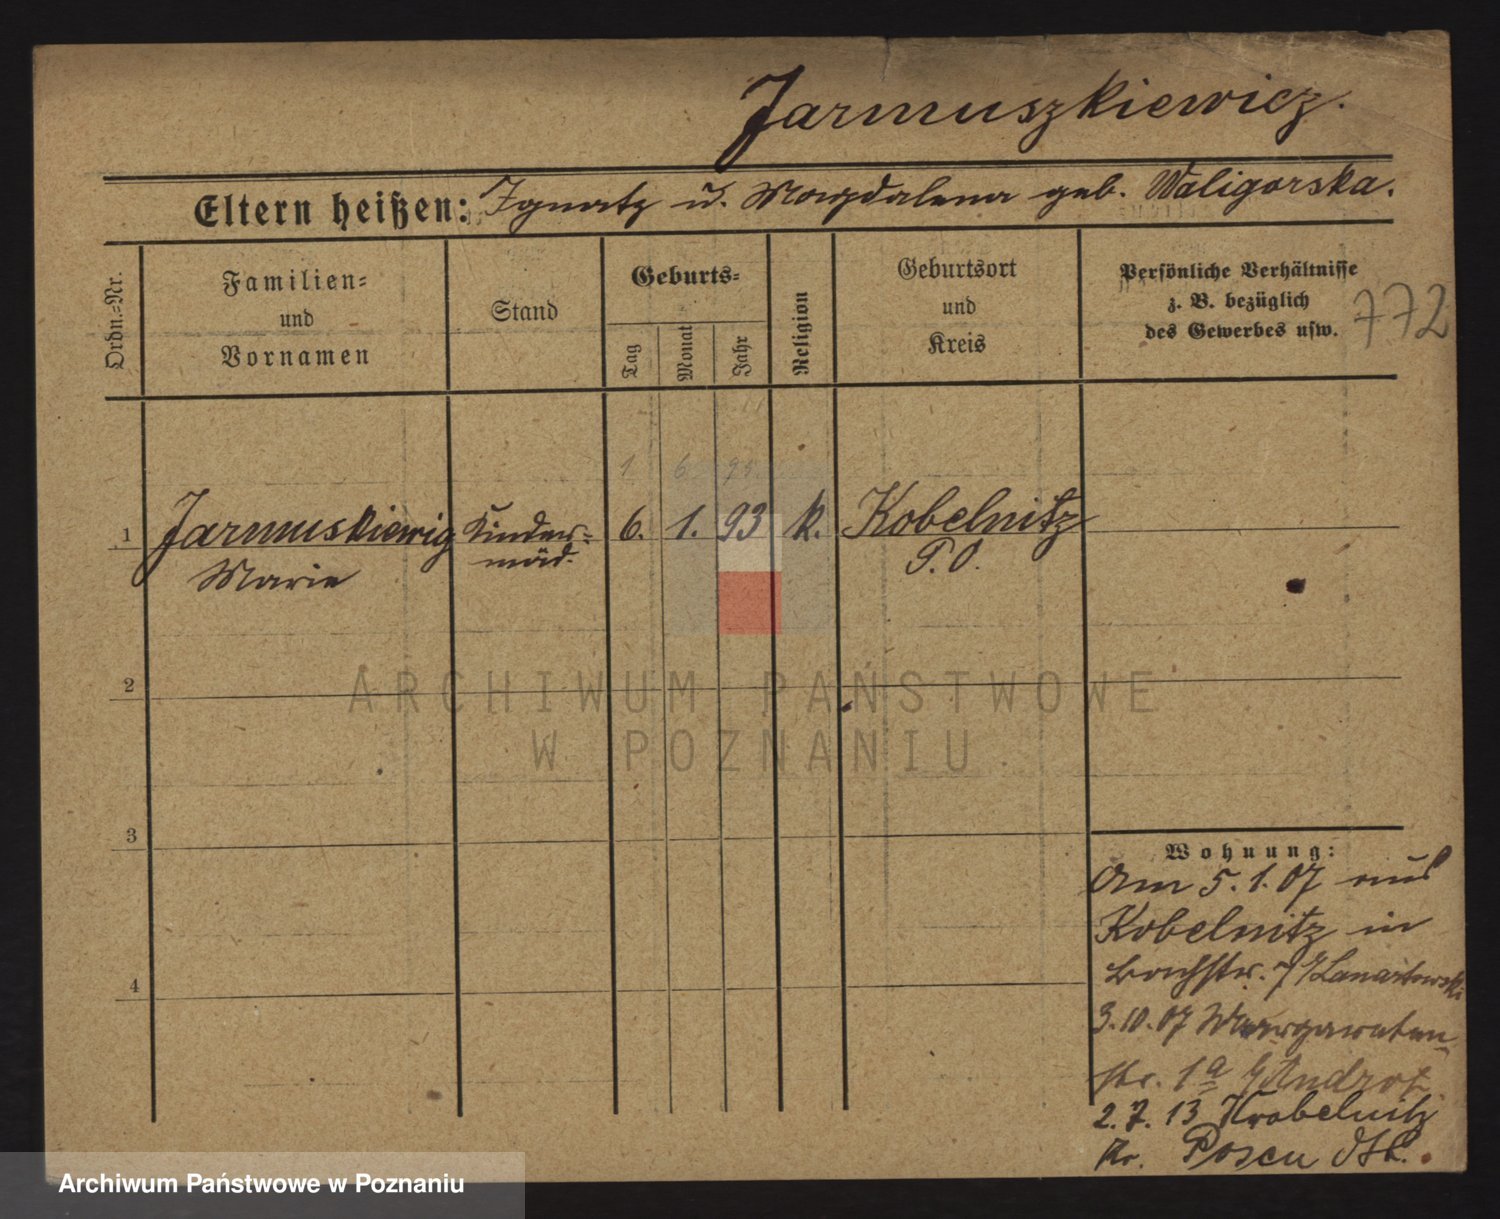 Jarmuszkiewicz.
Eltern heißen: Ignatz u. Magdalena geb. Waligorska.
Ordn.=Nr.
Familien=
und
Vornamen
Stand
Geburts=
Tag
Monat
Jahr
Religion
Geburtsort
und
Kreis
Persönliche Verhältnisse
z. B. bezüglich
des Gewerbes usw.
772
1. 6. 93
1 Jarmuskiewig Kinder= 6. 1. 93 k. Kobelnitz
Marie mäd. P. O.
2
3
4
ARCHIWUM PAŃSTWOWE
W POZNANIU
Wohnung:
Am 5.1.07 aus
Kobelnitz in
Bachstr. 7 b/Lanartowski
3.10.07 Margareten
str. 1a b/
2.7.13 Krobelnitz
Kr. Posen Ost.
Archiwum Państwowe w Poznaniu